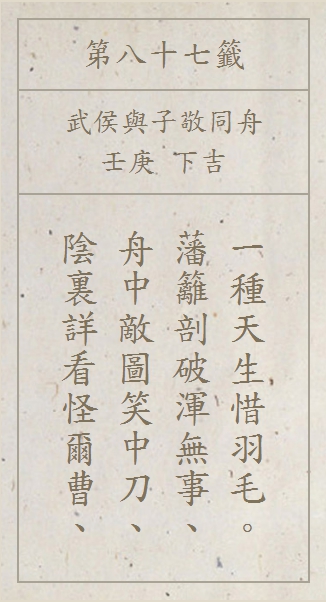 第八十七籤
武侯與子敬同舟
壬庚 下吉
一種天生惜羽毛。
藩籬剖破渾無事、
舟中敵圖笑中刀、
陰裏詳看怪爾曹、